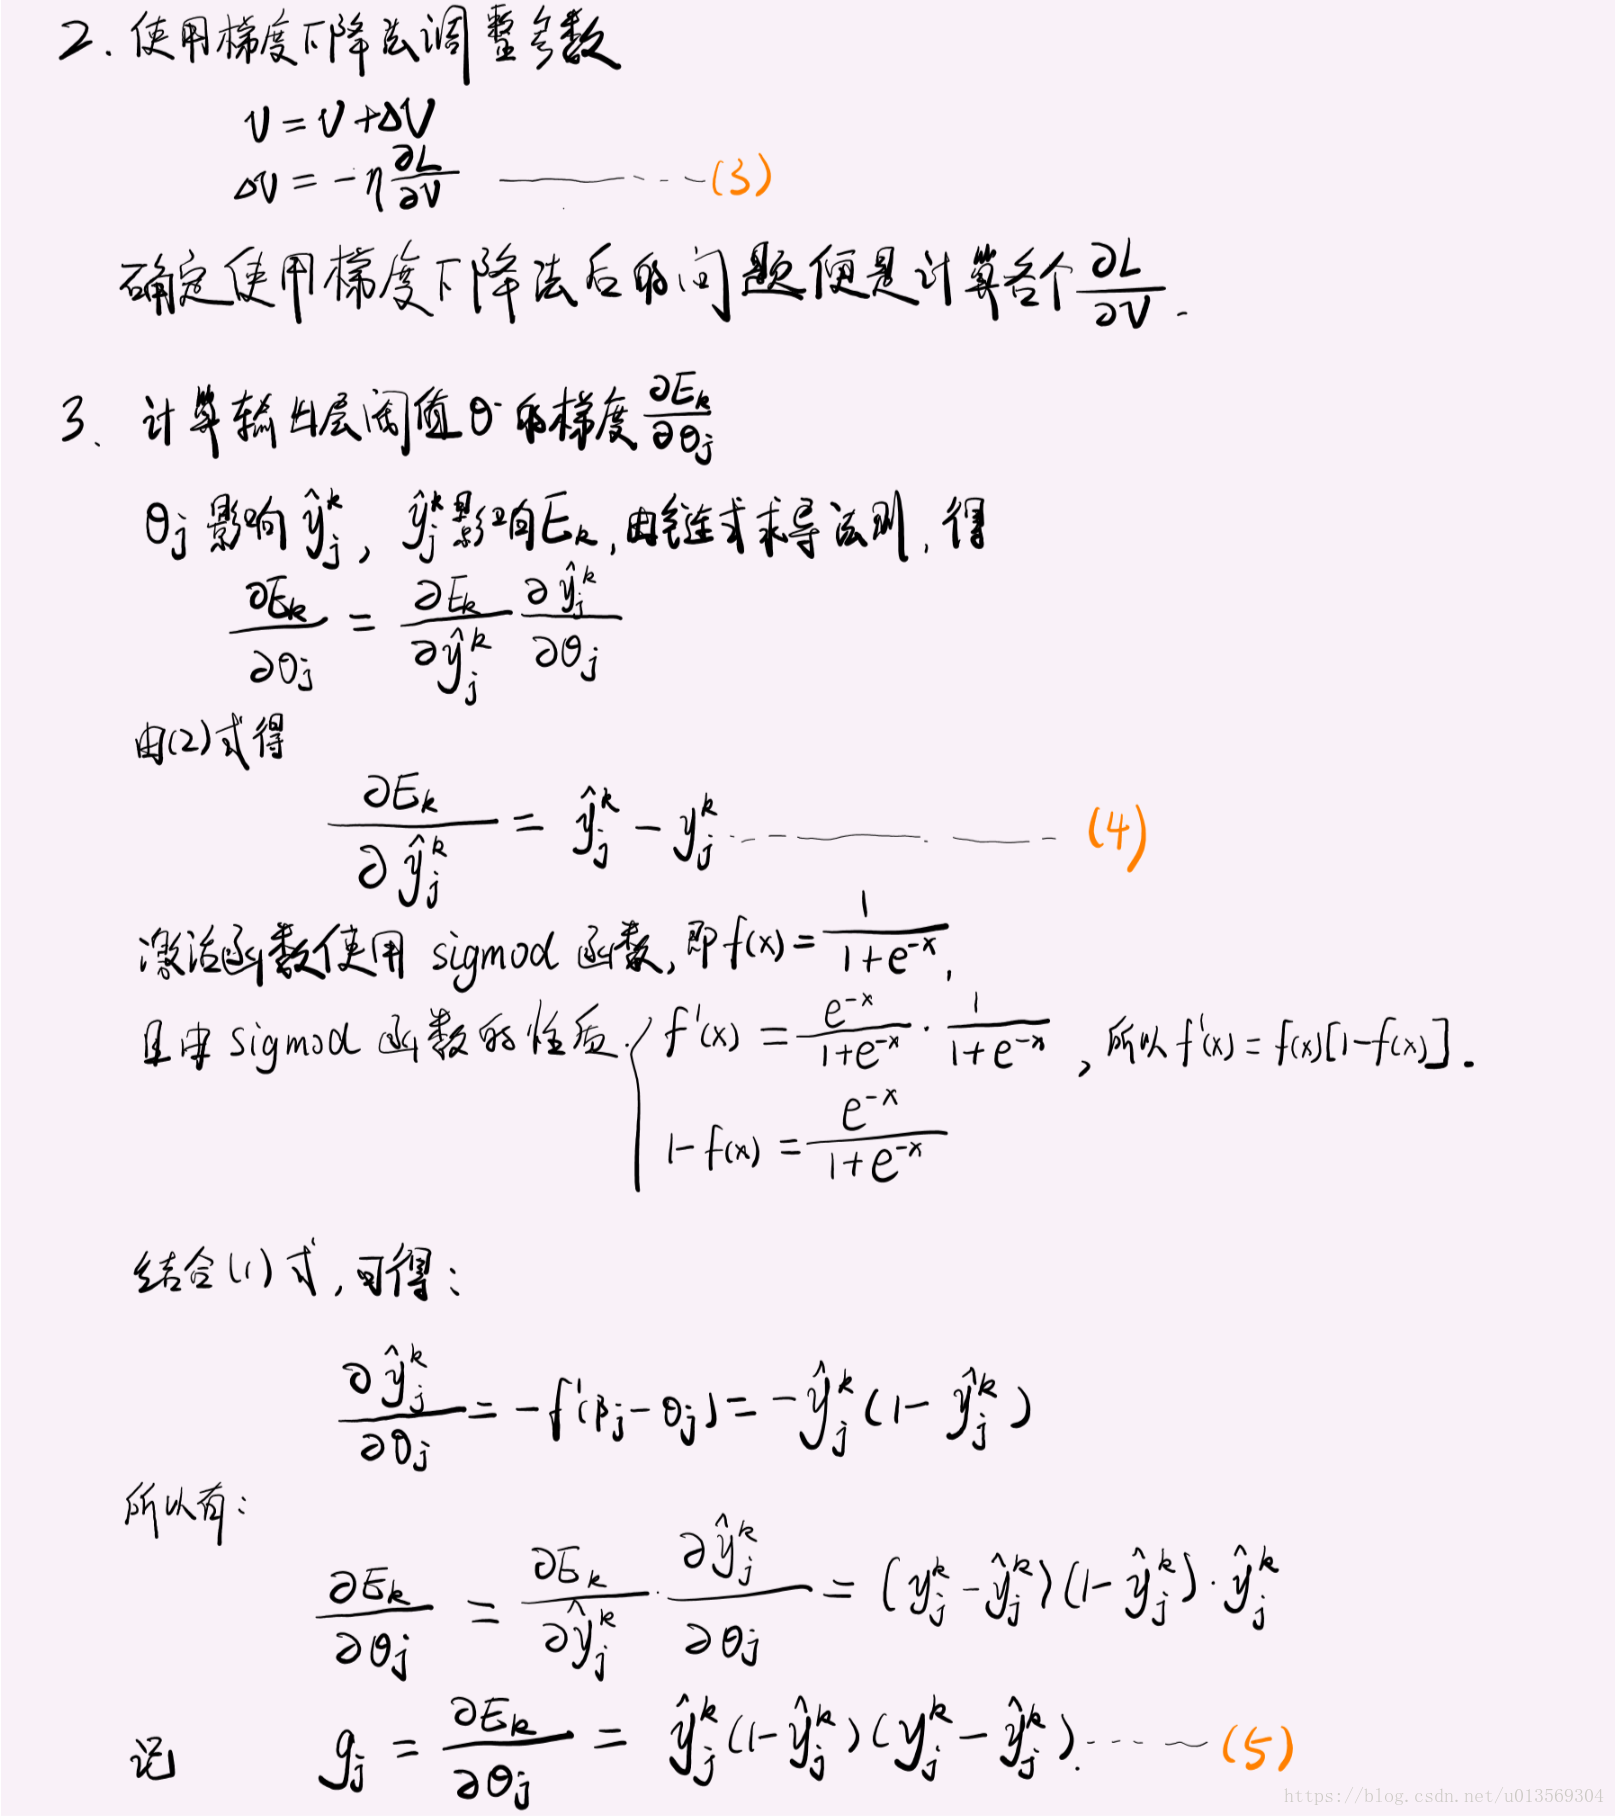 2. 使用梯度下降法调整参数
v = v + Δv
Δv = -η ∂L/∂v ——— (3)
确定使用梯度下降法后的问题便是计算各个 ∂L/∂v .
3、计算输出层阈值θ的梯度 ∂E_k/∂θ_j
θ_j 影响 ŷ_j^k, ŷ_j^k 影响 E_k, 由链式求导法则, 得
∂E_k/∂θ_j = ∂E_k/∂ŷ_j^k ∂ŷ_j^k/∂θ_j
由(2)式得
∂E_k/∂ŷ_j^k = ŷ_j^k - y_j^k ——— (4)
激活函数使用 sigmod 函数, 即 f(x) = 1/(1+e^{-x}),
且由 sigmod 函数的性质 { f'(x) = e^{-x}/(1+e^{-x}) · 1/(1+e^{-x}) , 所以 f'(x) = f(x)[1-f(x)].
1-f(x) = e^{-x}/(1+e^{-x})
结合(1)式, 可得:
∂ŷ_j^k/∂θ_j = -f'(β_j - θ_j) = -ŷ_j^k(1-ŷ_j^k)
所以有:
∂E_k/∂θ_j = ∂E_k/∂ŷ_j^k · ∂ŷ_j^k/∂θ_j = (y_j^k - ŷ_j^k)(1-ŷ_j^k)·ŷ_j^k
记 g_j = ∂E_k/∂θ_j = ŷ_j^k(1-ŷ_j^k)(y_j^k - ŷ_j^k). ——— (5)
https://blog.csdn.net/u013569304